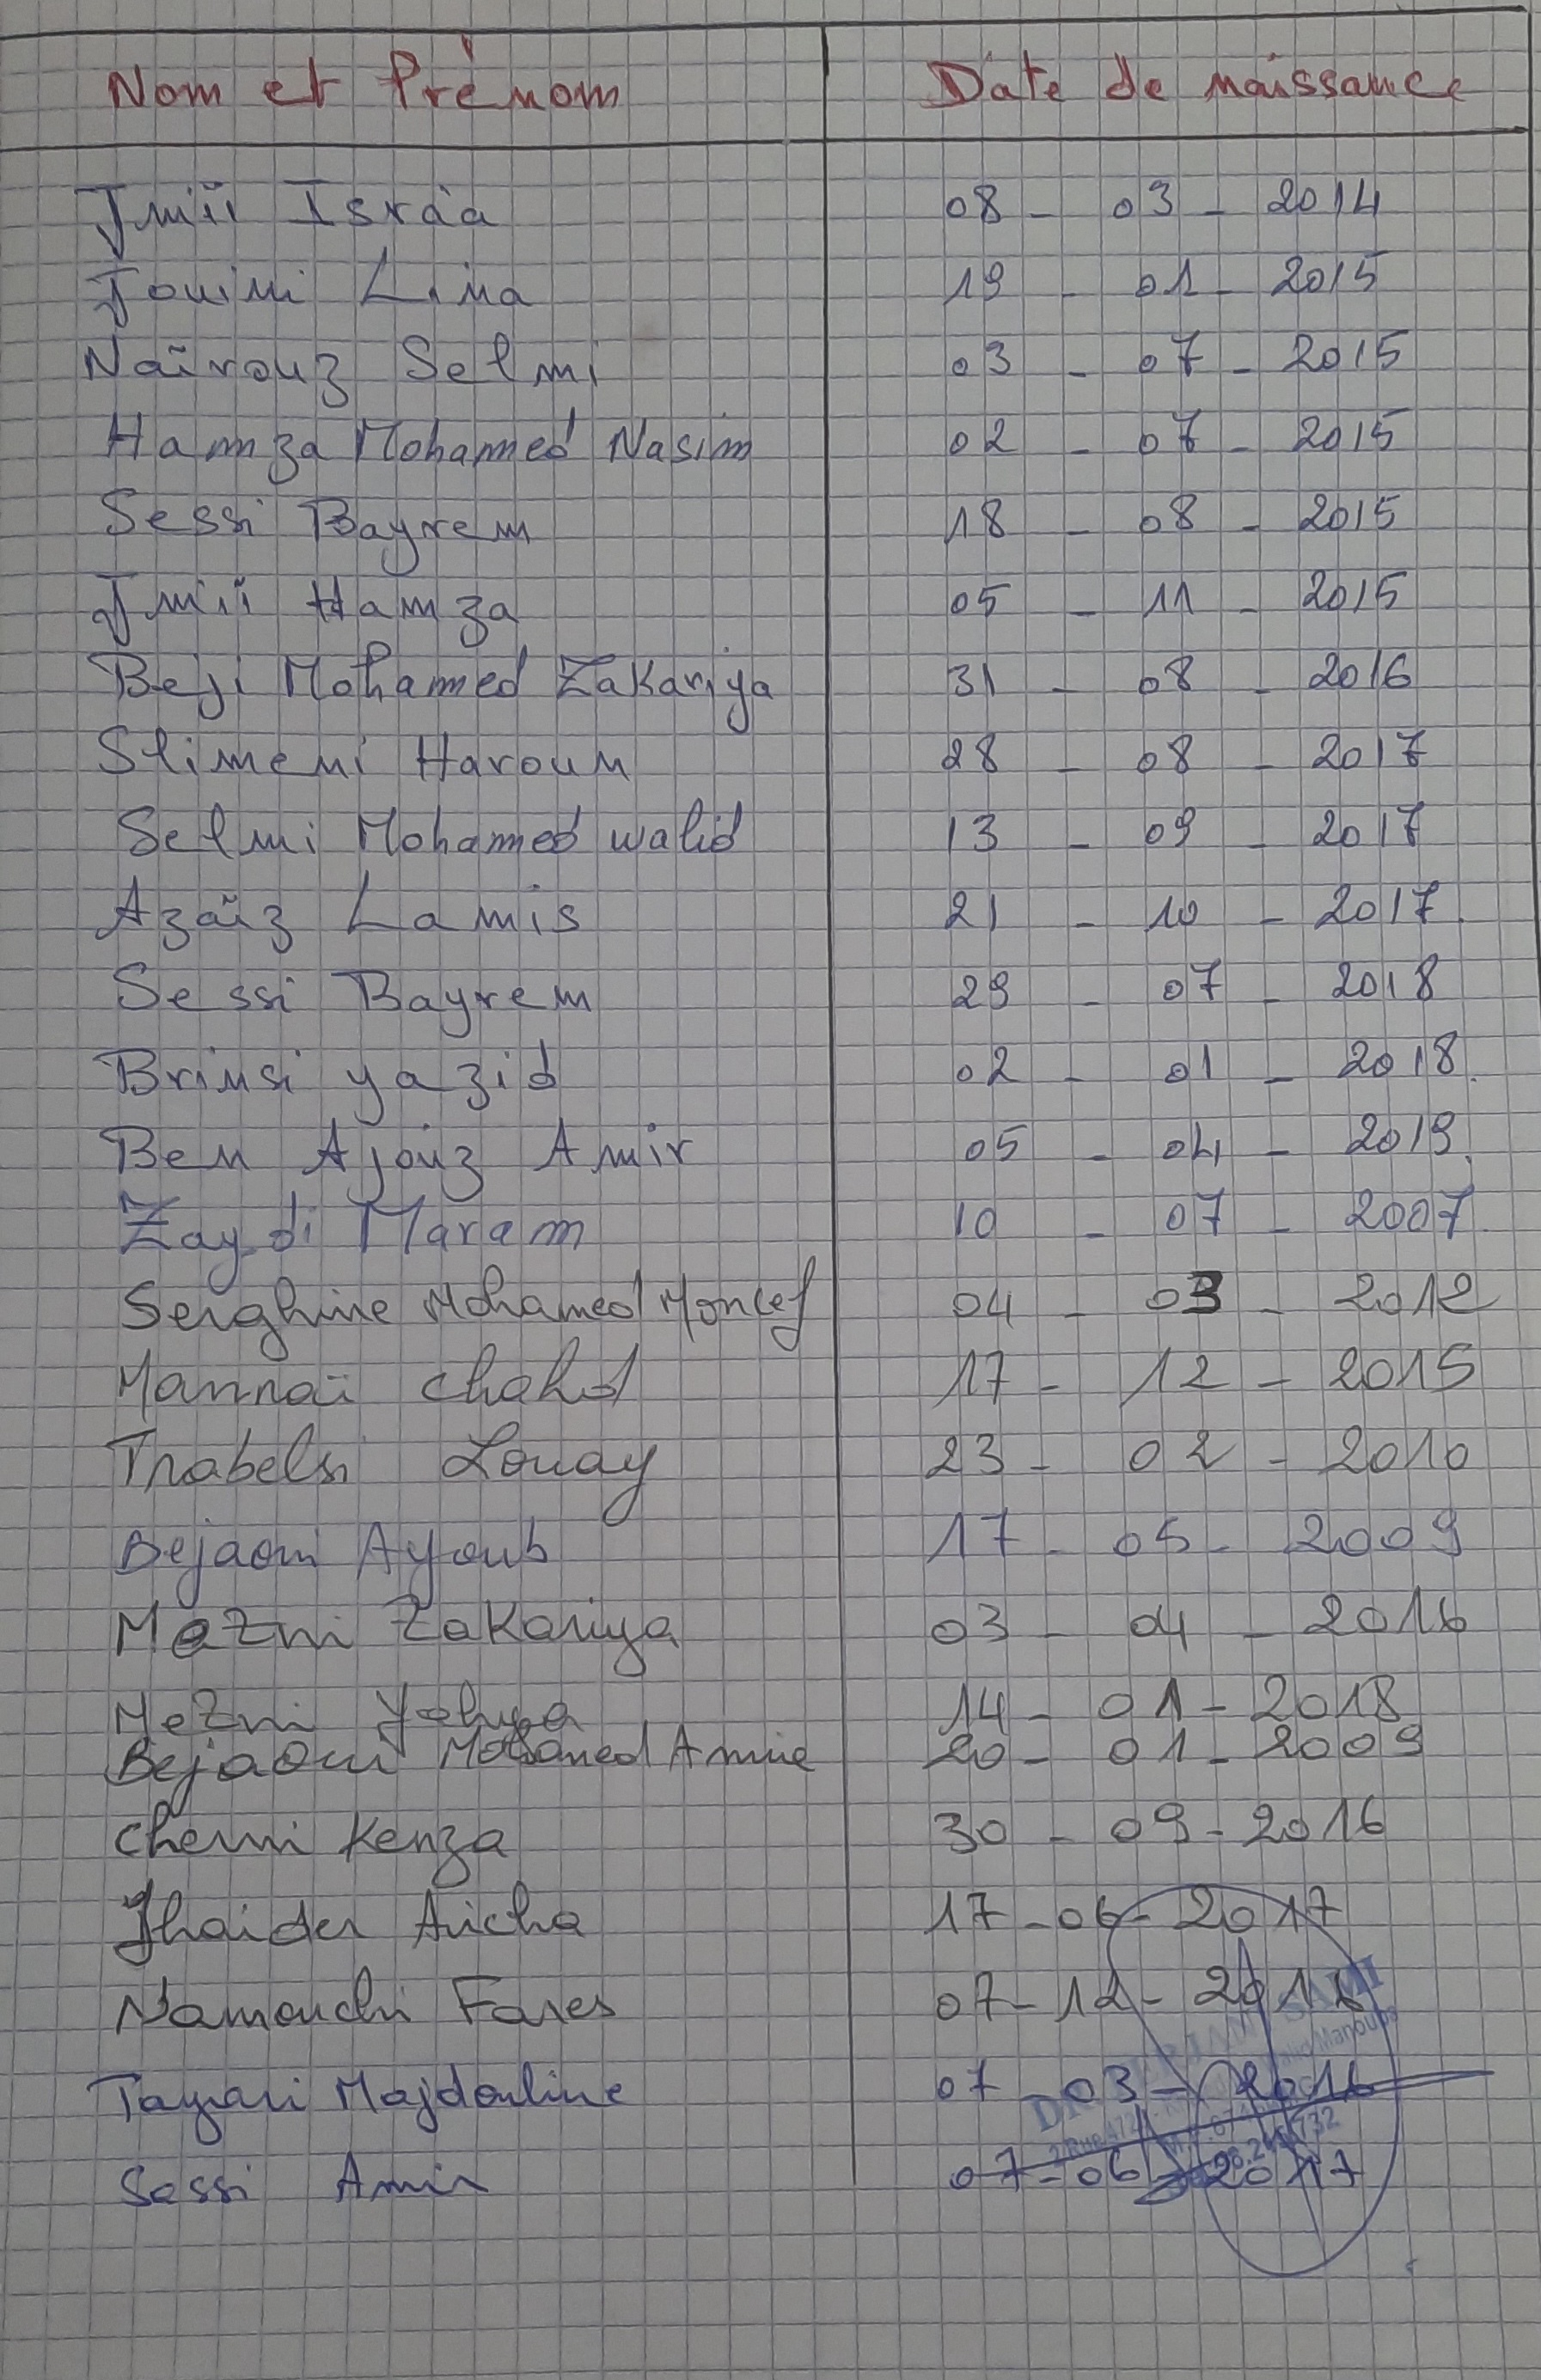 Nom et Prénom Date de naissance
Jmii Israa 08 - 03 - 2014
Jouini Lina 19 - 01 - 2015
Naïrouz Selmi 03 - 07 - 2015
Hamza Mohamed Nasim 02 - 07 - 2015
Sessi Bayrem 18 - 08 - 2015
Jmii Hamza 05 - 11 - 2015
Beji Mohamed Zakariya 31 - 08 - 2016
Slimeni Haroun 28 - 08 - 2017
Selmi Mohamed walid 13 - 09 - 2017
Azaïz Lamis 21 - 10 - 2017
Sessi Bayrem 29 - 07 - 2018
Brinsi yazid 02 - 01 - 2018
Ben Ajouz Amir 05 - 04 - 2019
Zaydi Maram 10 - 07 - 2007
Serghine Mohamed Moncef 04 - 03 - 2012
Mannaï chahd 17 - 12 - 2015
Trabelsi Louay 23 - 02 - 2010
Bejaoui Ayoub 17 - 05 - 2009
Mezni Zakariya 03 - 04 - 2016
Mezni Yahya 14 - 01 - 2018
Bejaoui Mohamed Amine 20 - 01 - 2009
cherni Kenza 30 - 09 - 2016
Jhaider Aicha 17 - 06 - 2017
Namouchi Fares 07 - 12 -
SAMI
Manouba
Tayari Majdouline 07 - 03 - 2016
Sessi Amir 07 - 06 - 2017